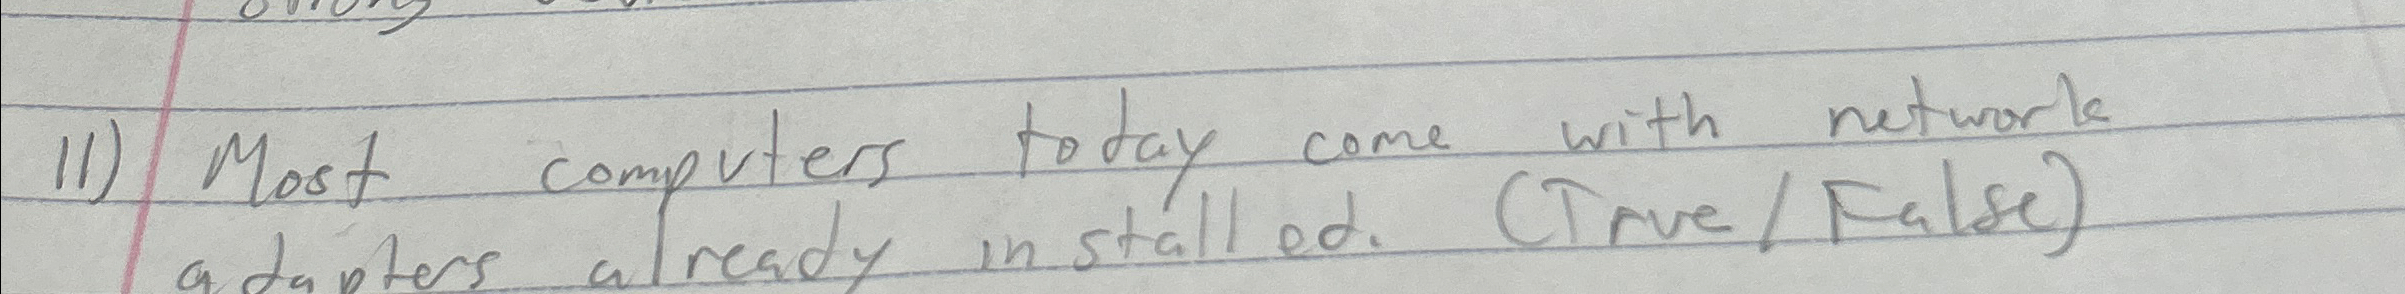 11) Most computers today come with network
adapters already installed. (True/False)